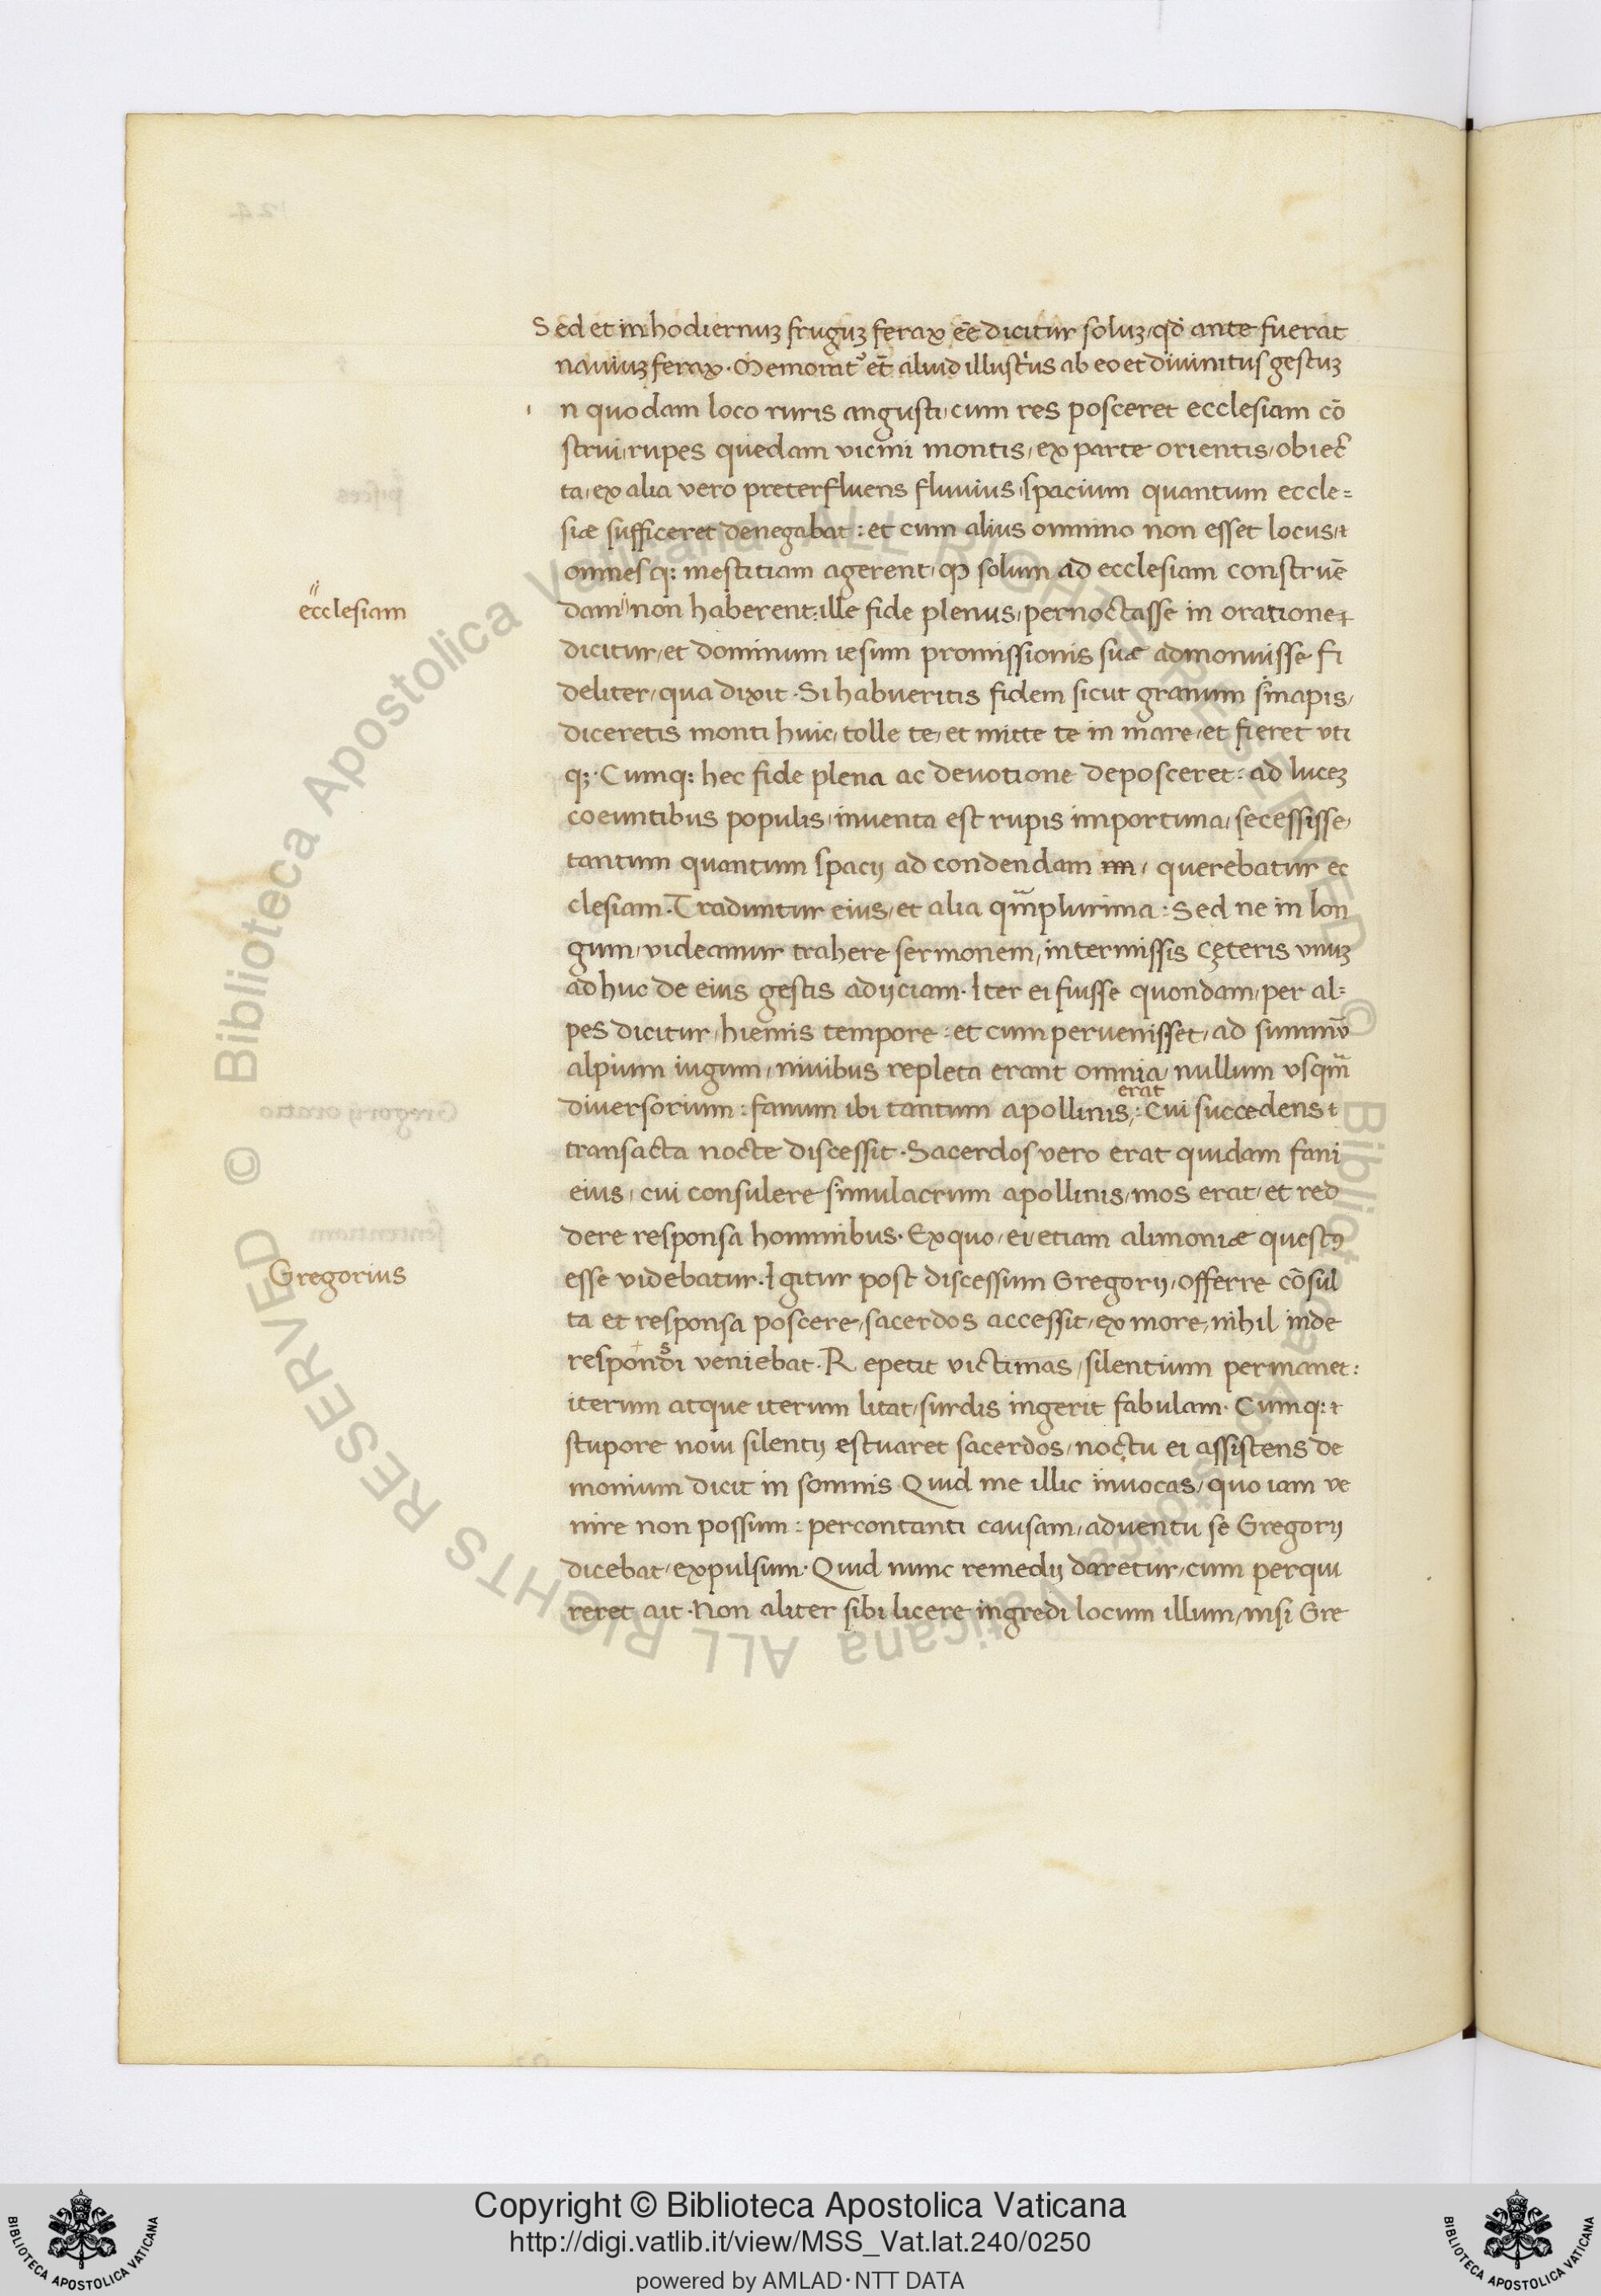 Sed et in hodiernuʒ fruguʒ ferax eē dicitur soluʒ, qđ ante fuerat
nauiuʒ ferax. Memorat᷒ et̄ aliud illustrius ab eo et diuinitus gestuʒ
ı n quodam loco ruris angusti, cum res posceret ecclesiam cō
strui, rupes quedam vicini montis, ex parte orientis, obiec
ta, ex alia vero preterfluens fluuius, spacium quantum eccle=
siæ sufficeret denegabat: et cum alius omnino non esset locus,
omnesq: mestitiam agerent, ꝙ solum ad ecclesiam construē
ecclesiam
dam non haberent: ille fide plenus, pernoctasse in oratione
dicitur, et dominum iesum promissionis suæ admonuisse fi
deliter, qua dixit. Si habueritis fidem sicut granum sinapis,
diceretis monti huic, tolle te, et mitte te in mare, et fieret vti
q:. Cumq: hec fide plena ac deuotione deposceret: ad luceʒ
coeuntibus populis, inuenta est rupis importuna, secessisse,
tantum quantum spacij ad condendam , querebatur ec
clesiam. Traduntur eius, et alia qm̄plurima: Sed ne in lon
gum, videamur trahere sermonem, intermissis cęteris vnuʒ
adhuc de eius gestis adijciam. Iter ei fuisse quondam, per al=
pes dicitur, hiemis tempore: et cum peruenisset, ad summū
alpium iugum, niuibus repleta erant omnia, nullum vsqm̄
erat
diuersorium: fanum ibi tantum apollinis,: Cui succedens
transacta nocte discessit. Sacerdos vero erat quidam fani
eius, cui consulere simulacrum apollinis, mos erat, et red
dere responsa hominibus. Ex quo, ei etiam alimoniæ quest9
Gregorius
esse videbatur. Igitur post discessum Gregorij, offerre cōsul
ta et responsa poscere, sacerdos accessit, ex more, nihil inde
respondi veniebat. Repetit victimas, silentium permanet:
iterum atque iterum litat, surdis ingerit fabulam. Cumq:
stupore noui silentij estuaret sacerdos, noctu ei assistens de
monium dicit in somnis Quid me illic inuocas, quo iam ve
nire non possum: percontanti causam, aduentu se Gregorij
dicebat, expulsum. Quid nunc remedij daretur, cum perqui
reret ait. Non aliter sibi licere ingredi locum illum, nisi Gre
© Biblioteca Apostolica Vaticana ALL RIGHTS RESERVED © Biblioteca Apostolica Vaticana ALL RIGHTS RESERVED
Copyright © Biblioteca Apostolica Vaticana
http://digi.vatlib.it/view/MSS_Vat.lat.240/0250
powered by AMLAD·NTT DATA
BIBLIOTECA APOSTOLICA VATICANA
BIBLIOTECA APOSTOLICA VATICANA